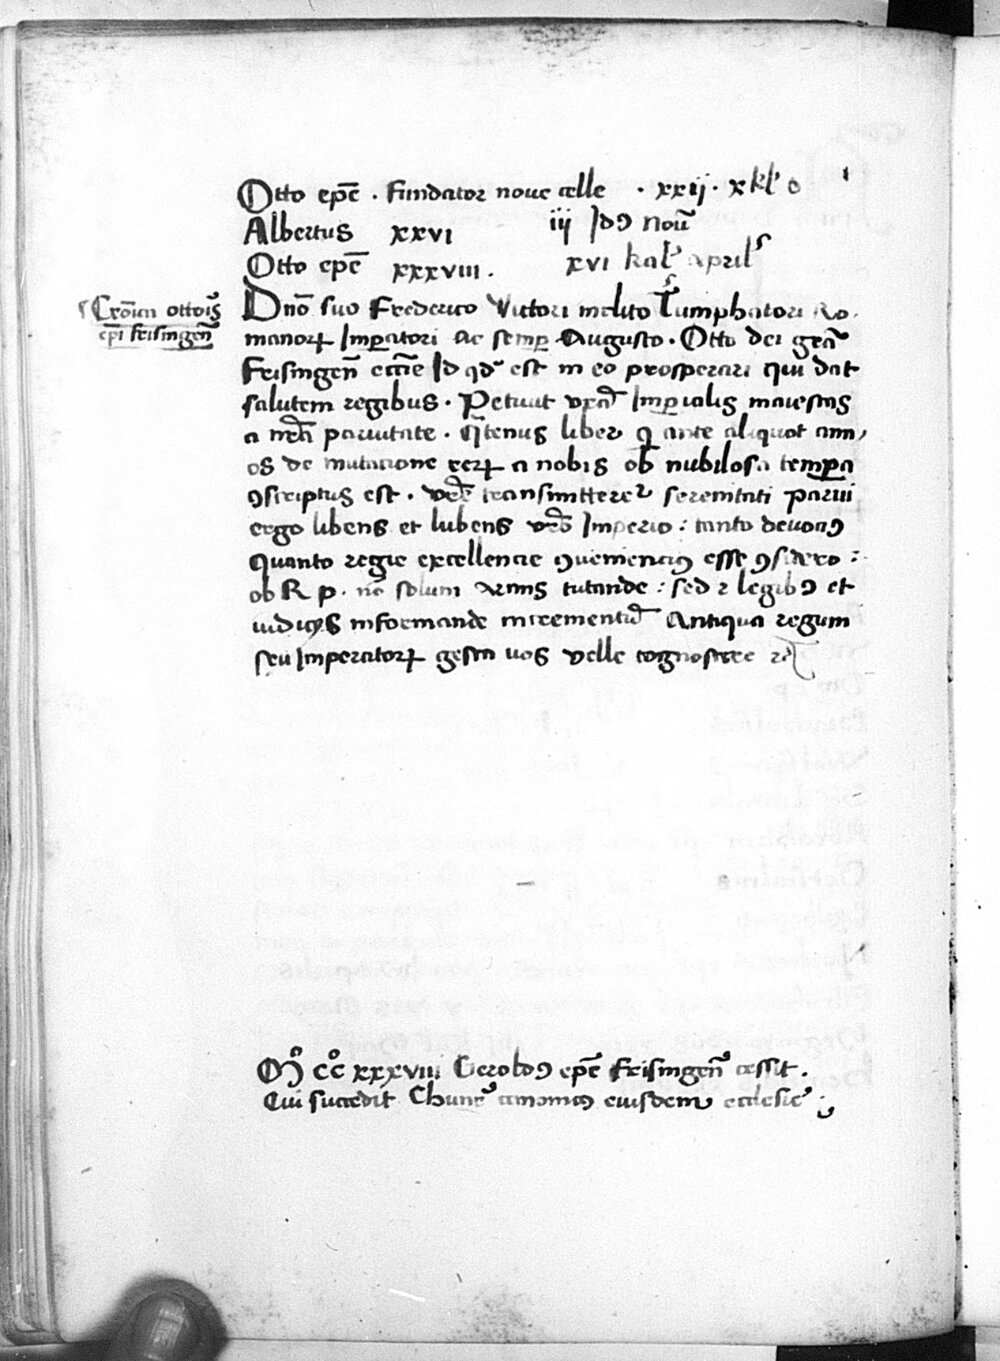 Otto epc̄ . Fundator noue celle . xxij . xkl' o
Albertus xxvi iij Idꝰ Nou̅
Otto epc̄ xxxviii . xvi kal' april'
Cro̅ica ottoi̅s
ep̅i Frisinge̅n
Dn̄o suo Frederico Victori inclito Tiumphatori Ro-
manorꝝ Imꝑatori ac semꝑ Augusto . Otto dei gra̅
Frisinge̅n eccl̅ie Id qd' est in eo prosperari qui dat
salutem regibus . Petiuit vr̅a Imꝑialis maiestas
a nr̅a paruitate . Qͣtenus liber q ante aliquot ann,
os de mutacione rerꝝ a nobis ob nubilosa tempa
ꝯscriptus est . vr̅e transmitteret͛ serenitati parui
ergo libens et lubens vr̅o Imperio : tanto deuocꝰ
Quanto regie excellencie ꝯuenienciꝰ esse ꝯsidero :
ob R p . no̅ solum armis tutande : sed ⁊ legibꝰ et
iudicijs informande incrementu̅ Antiqua regum
seu Imperatorꝝ gesta uos velle cognoscere
Mͦ cͦc xxxviii Geroldꝰ epc̄ Frisinge̅n cessit .
Cui succedit Chunr' canonicꝰ eiusdem ecclesie